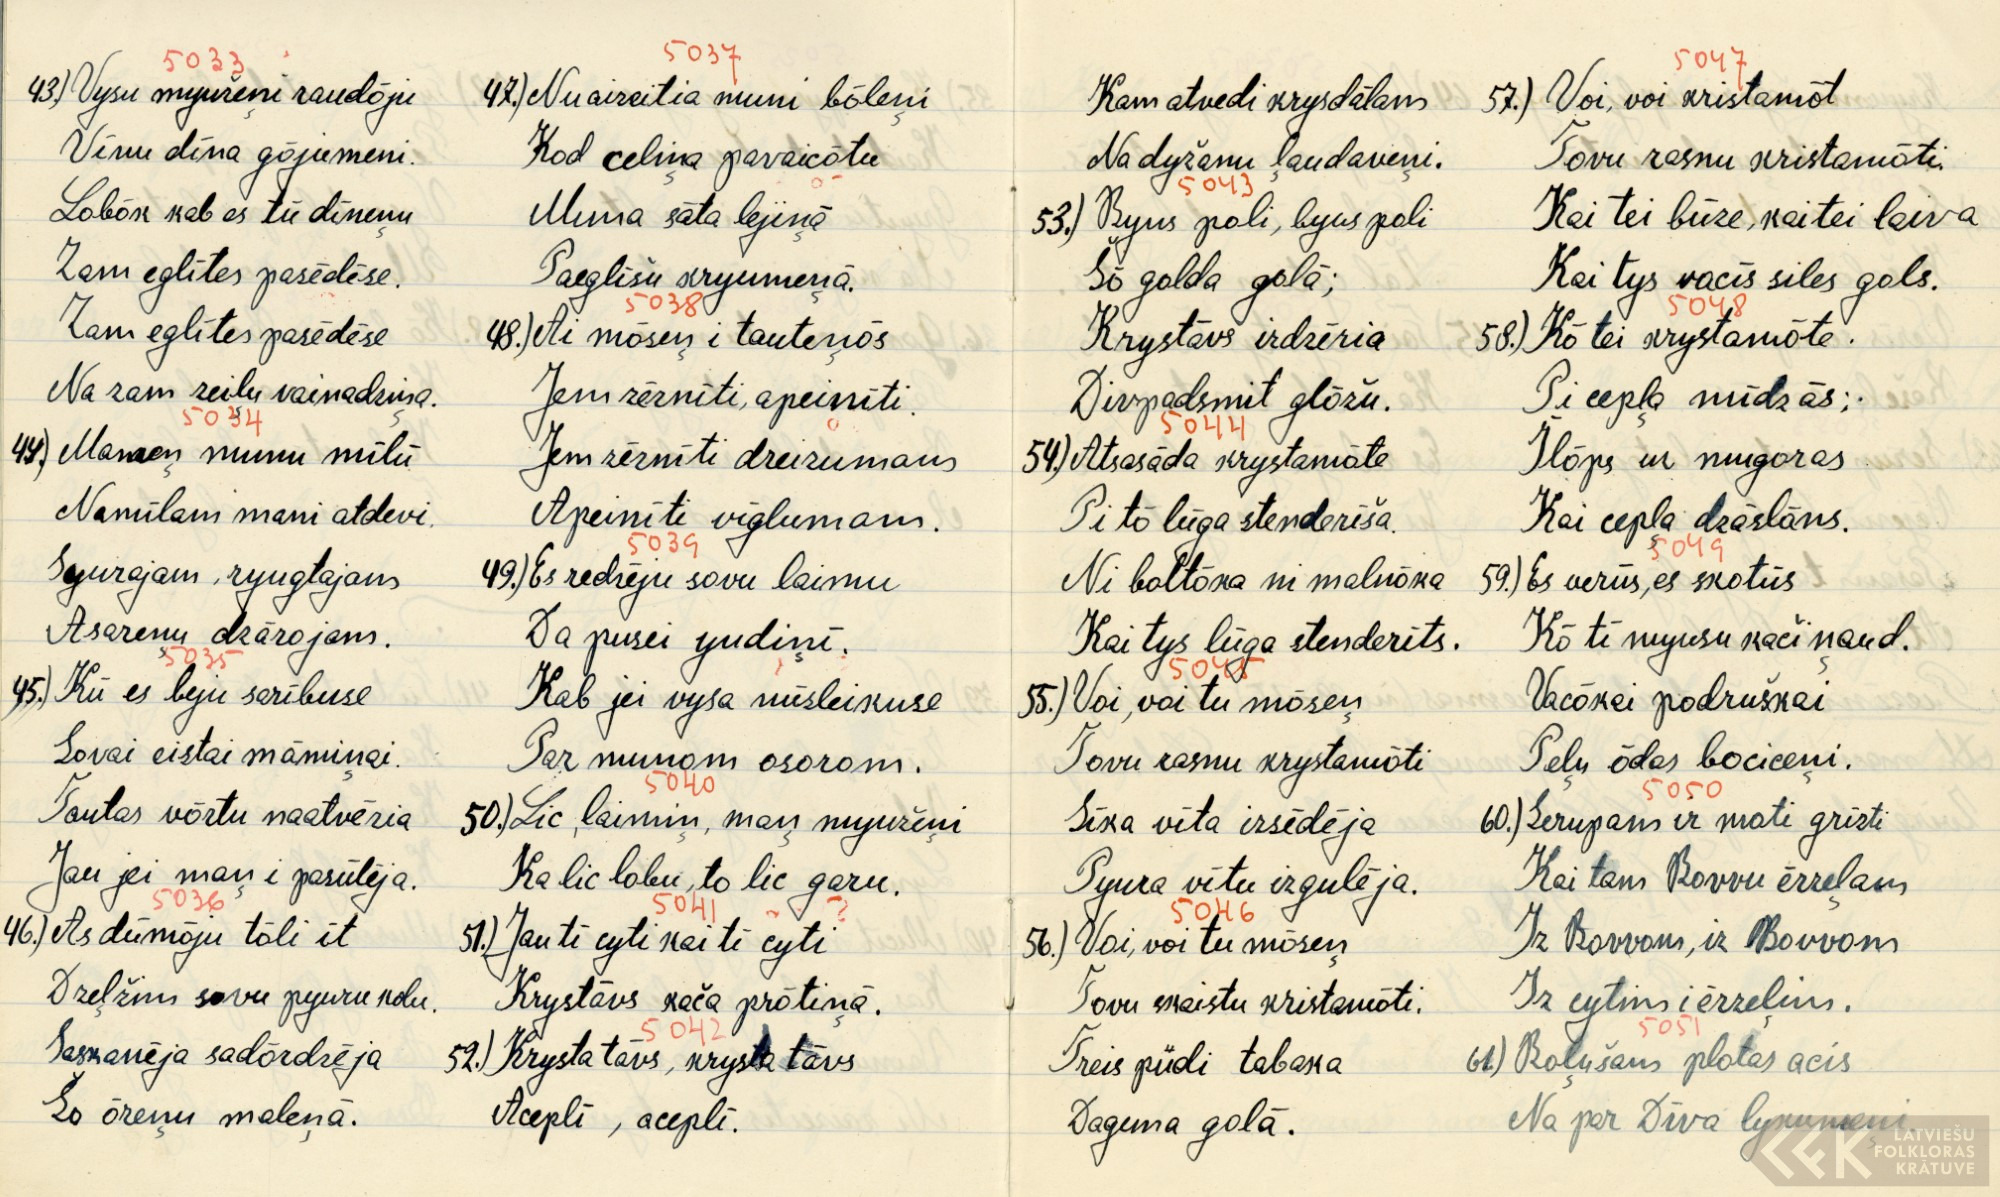 5033
43.) Vysu myužeņi raudōju
Vīnu dīna gōjumeni.
Lobōk kab es tū dīneņu
Zam eglītes pasēdēse.
Zam eglītes pasēdēse
Na zam zeiļu vainadziņa.
5034
44.) Mameņ munu mīlū
Namīlam mani atdevi.
Syurajam, ryugtajam
Asareņu dzārojam.
5035
45.) Kū es beju sarībuse
Sovai eistai māmiņai.
Tautas vōrtu naatvēria
Jau jei maņ i pasūlēja.
5036
46.) As dūmōju tōli īt
Dzeļžim sovu pyuru kolu.
Saskanēja sadōrdzēja
Šo ōreņu maleņā.
5037
47.) Nuaizeitia muni bōleņi
Kod celiņa pavaicōtu
Muna sāta lejiņā
Paeglīšu kryumeņā.
5038
48.) Ai mōseņ i tauteņōs
Jem zērnīti, apeinīti.
Jem zērnīti dreizumam
Apeinīti vīglumam.
5039
49.) Es redzēju sovu laimu
Da pusei yudiņī.
Kab jei vysa nūsleikuse
Par munom osorom.
5040
50.) Lic, laimiņ, maņ myužeņi
Ka lic lobu, to lic garu.
5041 ?
51.) Jau tī cyti kai tī cyti
Krystāvs kača prōtiņā.
5042
52.) Krysta tāvs, krysta tāvs
Aceplī, aceplī.
Kam atvedi krysdālam
Na dyžanu ļaudaveņi.
5043
53.) Byus poli, byus poli
Šō golda golā;
Krystāvs izdzēria
Divpadsmit glōžu.
5044
54.) Atsasāda krystamōte
Pi tō lūga stenderīša.
Ni boltōka ni malnōka
Kai tys lūga stenderīts.
5045
55.) Voi, voi tu mōseņ
Tovu rasnu krystamōti
Sīka vīta izsēdēja
Pyura vītu izgulēja.
5046
56.) Voi, voi tu mōseņ
Tovu skaistu kristamōti.
Treis pūdi tabaka
Daguna golā.
5047
57.) Voi, voi kristamōt
Tovu rasnu kristamōti.
Kai tei būze, kai tei laiva
Kai tys vacīs siles gols.
5048
58.) Kō tei krystamōte.
Pi cepļa nūdzās;
Īlōps ur nugoras
Kai cepļa dzāslāns.
5049
59.) Es verūs, es skotūs
Kō tī myusu kači ņaud.
Vacōkai podruškai
Peļu ōdas bociceņi.
5050
60.) Serupam ir mati grīzti
Kai tam Bovvu ērzeļam
Iz Bovvom, iz Bovvom
Iz cytim i ērzeļim.
5051
61.) Boļušam plotas acis
Na par Dīva lykumeņi.
LATVIEŠU
FOLKLORAS
KRĀTUVE